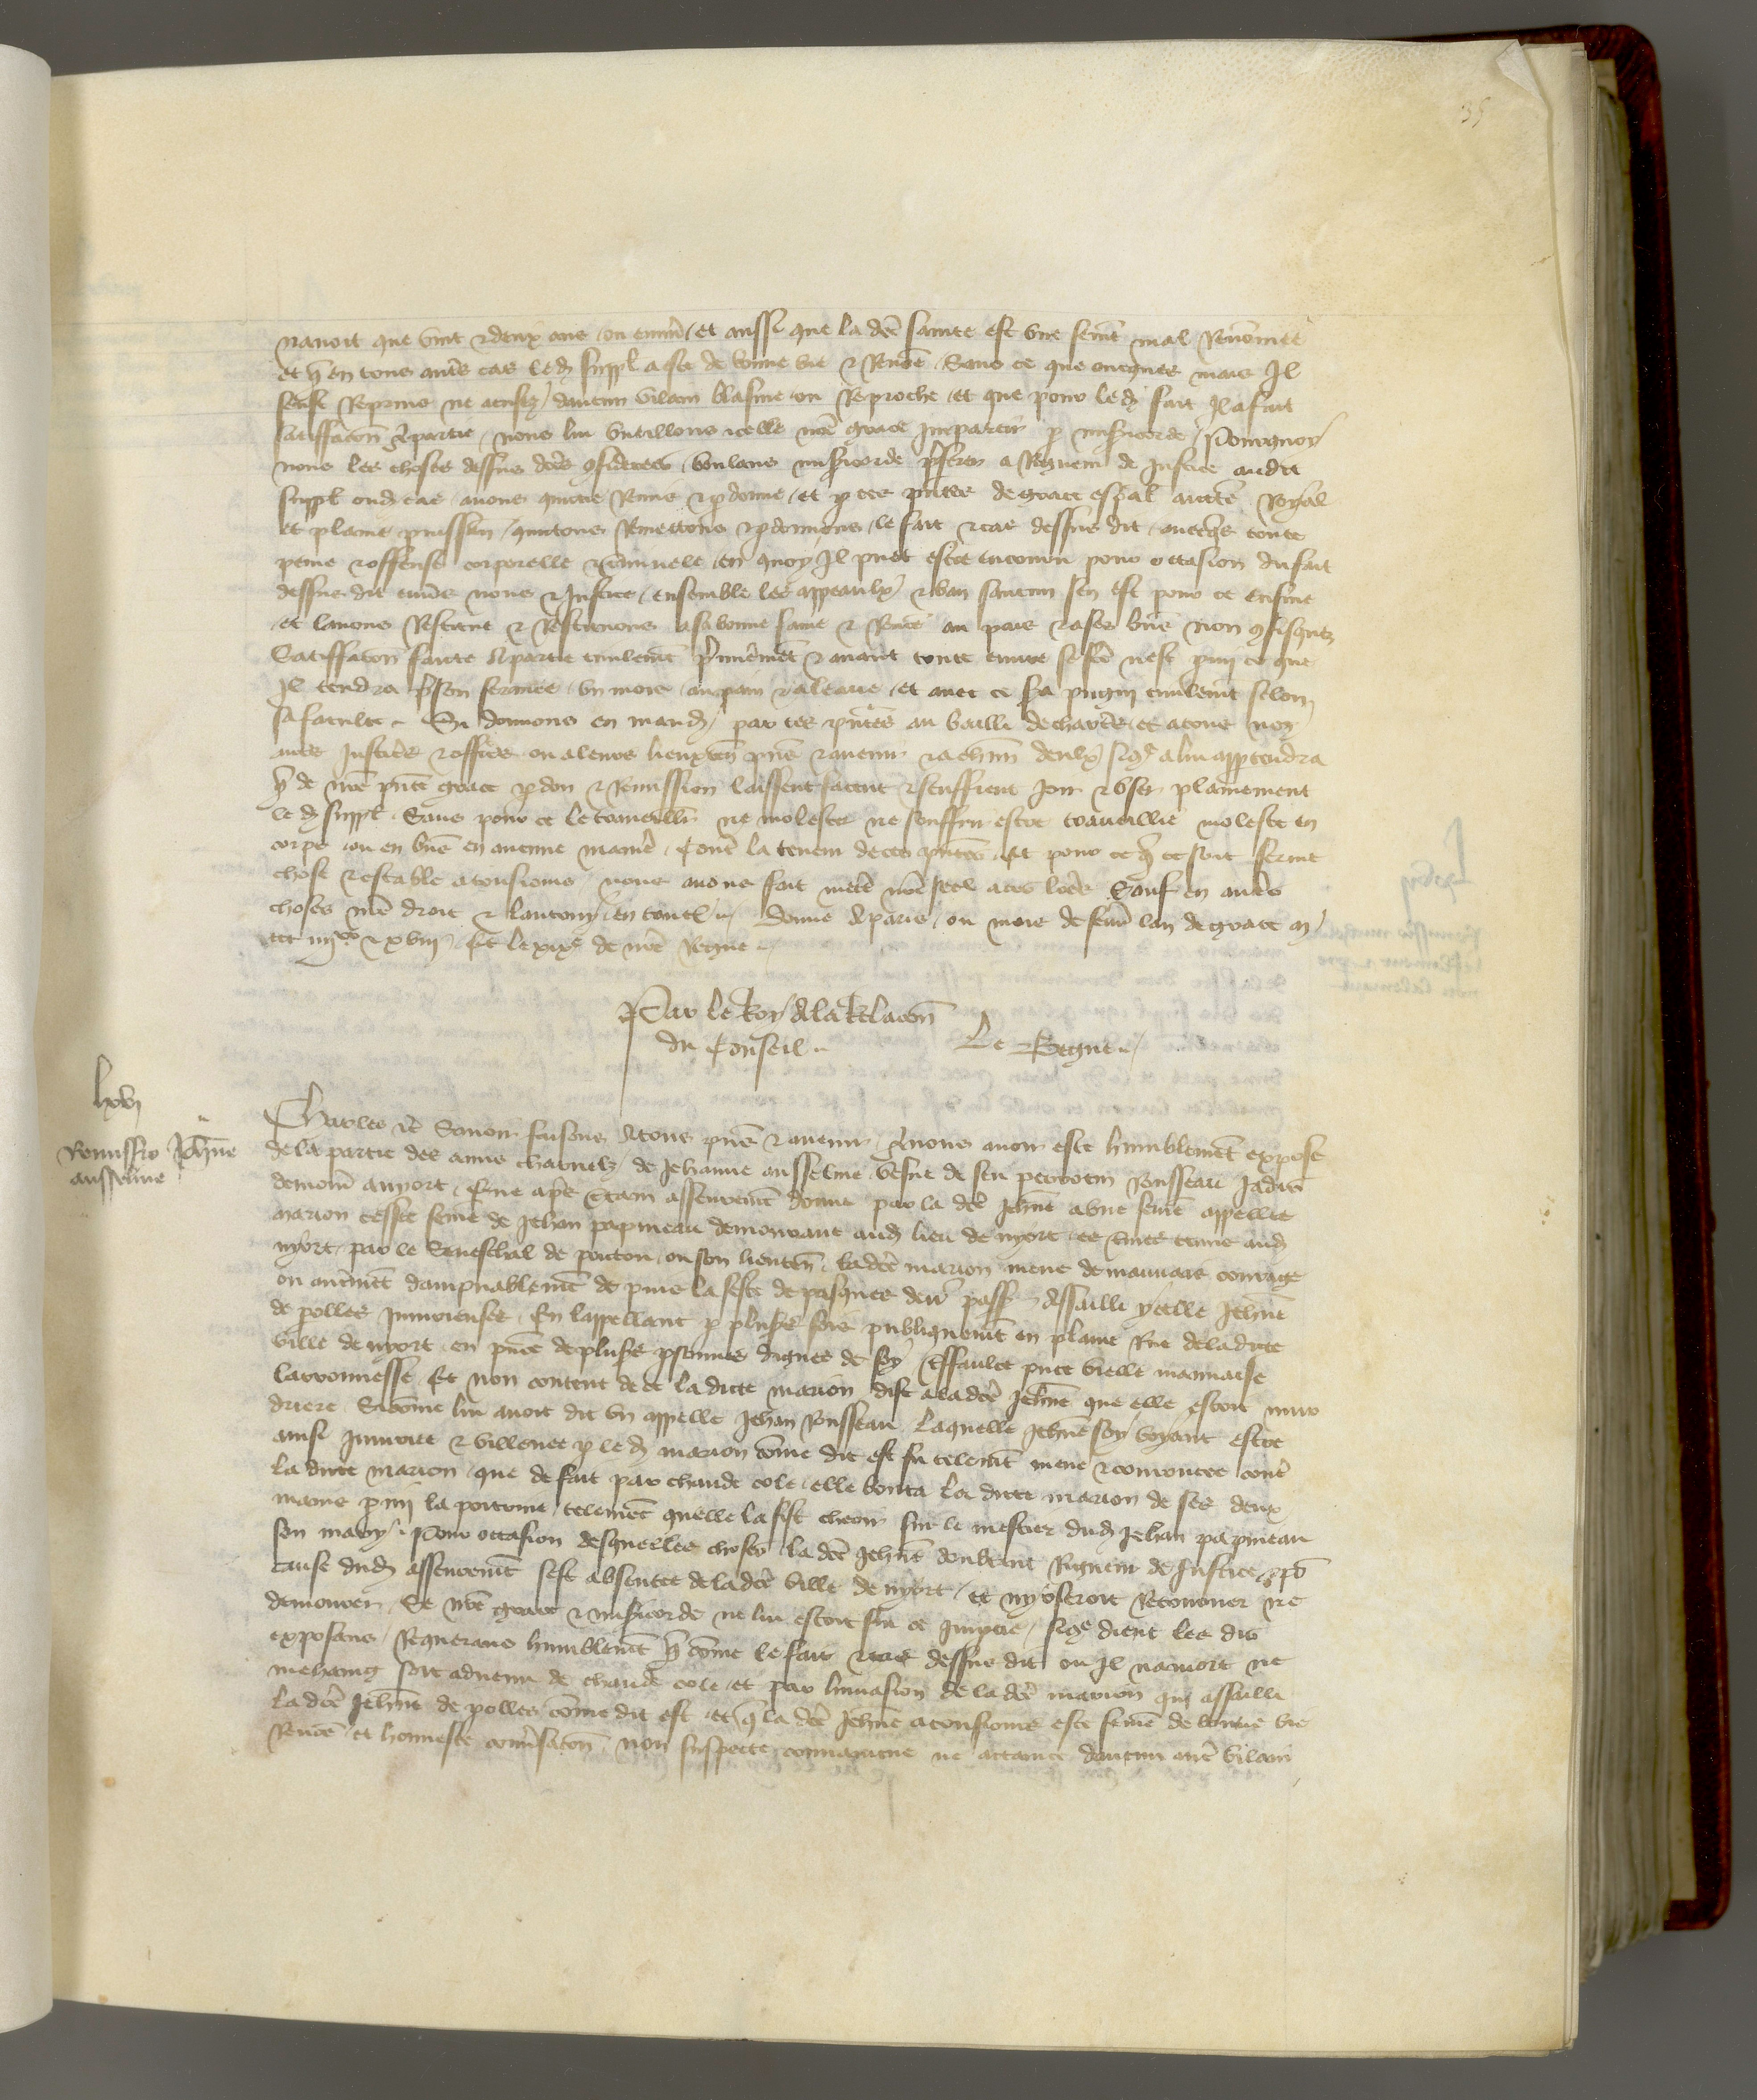 35
navoit que vint et deux ans ou environ et aussi que la dce sainte est une feme mal renommee
et q en tous autres cas led suppl a este de bonne vie et renomee Sans ce que oncques mais Il
feust Reprins ne actaint daucun vilain blasme ou Reproche et que pour led fait Il a fait
satisfacion a partie nous lui vueillons icelle nre grace Impartir p misericorde Pourquoy
nous les choses dessus dces considerees voulans misericorde preferer a Rigueur de Justice audit
suppl oud cas avons quicte Remis et pdonne et p ces pntes de grace espal auctte Royal
et plaine puissance quictons Remettons et pdonnons le fait et cas dessus dit avecques toute
peine et offense corporelle et criminele en quoy Il puet estre encouru pour occasion du fait
dessus dit envers nous et Justice ensemble les appeaulx et ban saucun sen est pour ce ensuy
et lavons Restitue et Restituons a sa bonne fame et Renomee au pais et a ses biens non confisquez
Satisfacion faicte a partie civilement premierement et avant toute euvre se fce nest pmi ce que
Il tendra prison fermee un mois au pain et a leaue et avec ce sa pugny civilement selon
sa faculte Si donnons en mand par ces pntes au bailli de chartres et a tous noz
autres Justiciers et officiers ou a leurs lieuxten pns et avenir et a chun deulx sicoe a lui apptendra
q de nre pnte grace pdon et Remission laissent facent et seuffrent Joir et user plainement
led suppl Sans pour ce le travaillier ne molester ne souffrir estre travaillie moleste en
corps ou en biens en aucune maniere contre la teneur de ces pntes Et pour ce q ce soit ferme
chose et estable a tousjours nous avons fait mettre nre seel a ces lres Sauf en autres
choses nre droit et lautruy en toutes Donne a paris ou mois de fevrier lan de grace m
ccc iiijxx et xviij Et le xixe de nre Regne
Par le Roy a la Relacion
du Conseil Le Begue
lxvj
Remissio Jehane
ausseline
Charles etc Savoir faisons a tous pns et avenir A nous avoir este humblement expose
de la partie des amis charnelz de Jehanne ausseline vefve de feu perrotin Rousseau Jadis
demour a nyort Que apres certain asseurement donne par la dce Jehane a une feme appellee
Marion tessee feme de Jehan papineau demourant aud lieu de nyort es assises tenues aud
nyort par le Seneschal de poitou ou son lieuten ladce marion meue de mauvais courage
ou autrement dampnablement depuis la feste de pasques derr passee Assailli ycelle Jehane
de polles Injurieuses En lappellant p pluss fois publiquement en plaine Rue de ladite
ville de nyort en pnce de pluss psonnes dignes de foy Essaulee pute vielle mauvaise
larronnesse Et non contente de ce ladicte marion dist a ladce Jehane que elle estoit mur
driere Sicome lui avoit dit un appelle Jehan Rousseau Laquelle Jehane soy voyant estre
ainsi Injuriee et villenee p led marion come dit est fu telement meue et courroucee contre
ladicte marion que de fait par chaude cole elle bouta ladicte marion de ses deux
mains pmi la poitrine telement quelle la fist cheoir sur le mestier dud Jehan papineau
son mary Pour occasion desquelles choses la dce Jehane doubtant Rigueur de Justice
cause dud asseurement sest absentee de la dce ville de nyort et ny oseroit Retourner ne
demourer Se nre grace et misericorde ne lui estoit sur ce Impartie sicoe dient les dis
exposans Requerans humblement q come le fait et cas dessus dit ou Il na mort ne
mehaing soit advenu de chaude cole et par linvasion de la dce marion qui assailli
la dce Jehane de polles come dit est et q la dce Jehane a tousjours este feme de bonne vie
Renomee et honneste conversacion non suspecte convaincue ne actainte daucun autre vilain